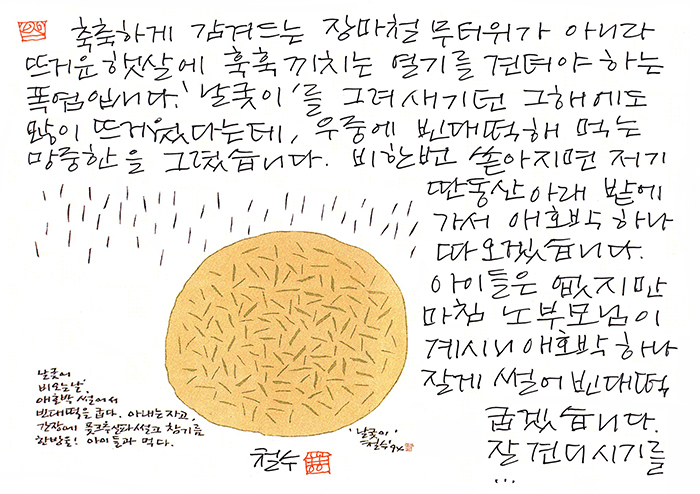 축축하게 감겨드는 장마철 무더위가 아니라
뜨거운 햇살에 훅훅 끼치는 열기를 견뎌야 하는
폭염입니다. '날궂이'를 그려 새기던 그해에도
많이 뜨거웠다는데, 우중에 빈대떡해 먹는
망중한을 그렸습니다. 비한번 쏟아지면 저기
딴동산 아래 밭에
가서 애호박 하나
따 오겠습니다.
아이들은 없지만
마침 노부모님이
계시니 애호박 하나
잘게 썰어 빈대떡
굽겠습니다.
잘 견디시기를
...
날궂이
비오는날,
애호박 썰어서
빈대떡을 굽다. 아내는 자고,
간장에 풋고추 실파 썰고 참기름
한방울! 아이들과 먹다.
'날궂이'
철수'94
철수